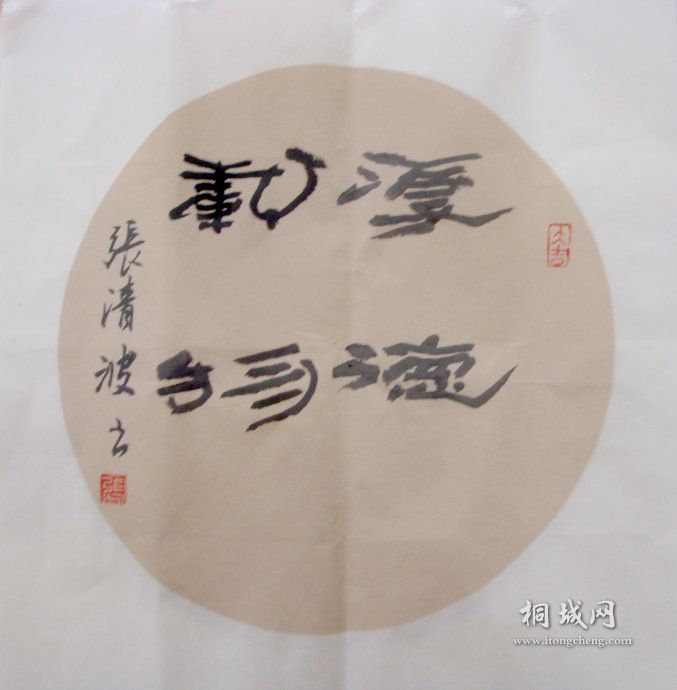 厚德
載物
張清波书
大吉
桐城网
www.itongcheng.com